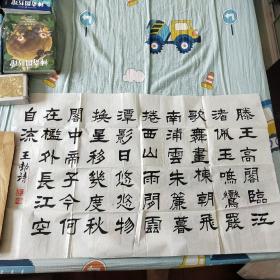 滕王高閣臨江
渚佩玉鳴鸞罷
歌舞畫棟朝飛
南浦雲朱簾暮
捲西山雨閒雲
潭影日悠悠物
換星移幾度秋
閣中帝子今何
在檻外長江空
自流 王勃詩